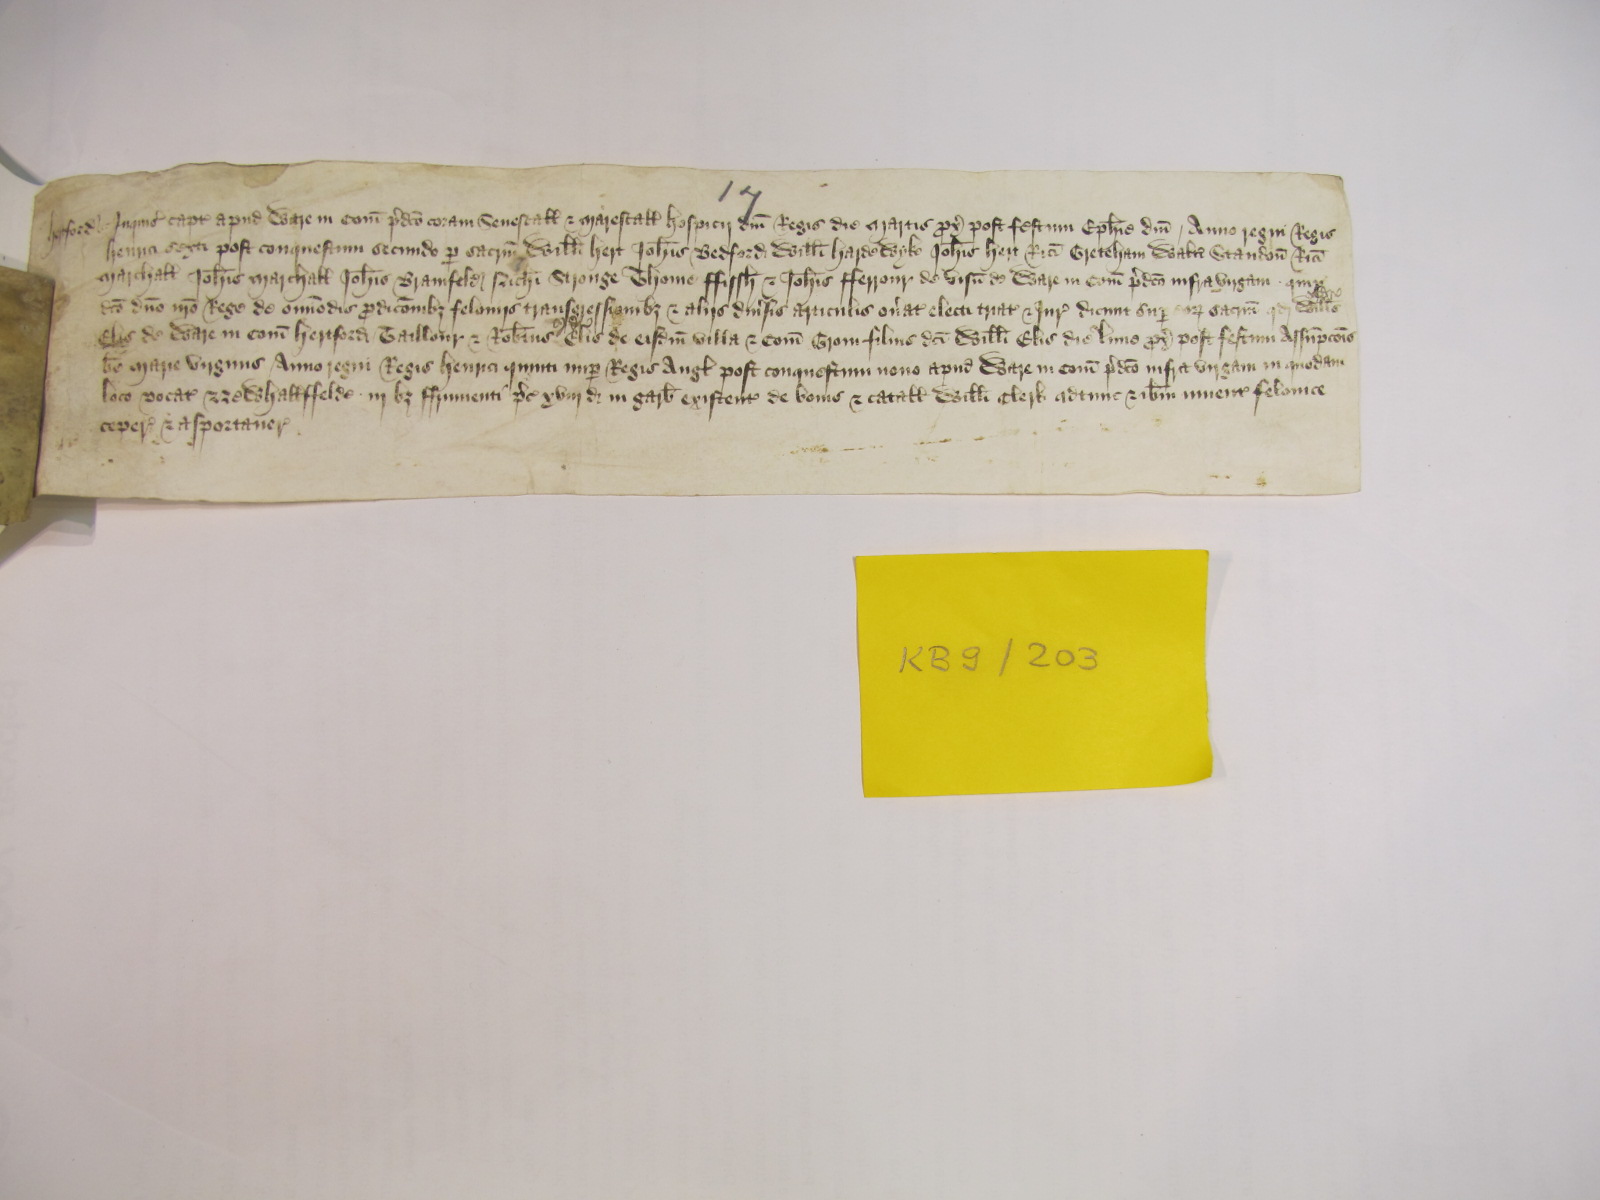 17
hertford Inquis capt apud Ware in Com p̄dc̄o coram Senescall & Marescall hospicij dn̄i Regis die Martis prox post festum Ephīe dn̄i Anno regni Regis
henrici sexti post conquestum secundo per sacrm̄ Willi hert Joh̄is Bedford Willi hardewyk Joh̄is hert Ric̄i Greteham Walt̄i Standon̄ Ric̄i
Marchall Joh̄is Marchall Joh̄is Bramfeld Stronge Thome ffissh & Joh̄is fferrour de visū de Ware in Com̄ p̄dc̄o infra virgam
dc̄o dn̄o nr̄o Rege de om̄odis prodic̄oibz felonijs transgressionibz & alijs div̄sis articulis on̄at electi triat & Jur dicunt sup sacrm̄ qd Will̄s
Elis de Ware in Com̄ hertford Taillour & Rob̄tus Elis de eisdm̄ villa & Com̄ Grom filius dc̄i Will̄i Elis die lune prox post festum Assūpc̄ois
b̄e Marie virginis Anno regni Regis henrici quinti nup Regis Angl post conquestum nono apud Ware in Com̄ p̄dc̄o infra virgam in quodam
loco vocat Whatffelde iij bz ffrumenti p̄c xviij d in garb existent de bonis & catall Will̄i Clerk adtunc & ib̄m invent felonice
ceper & asportaver
KB9/203